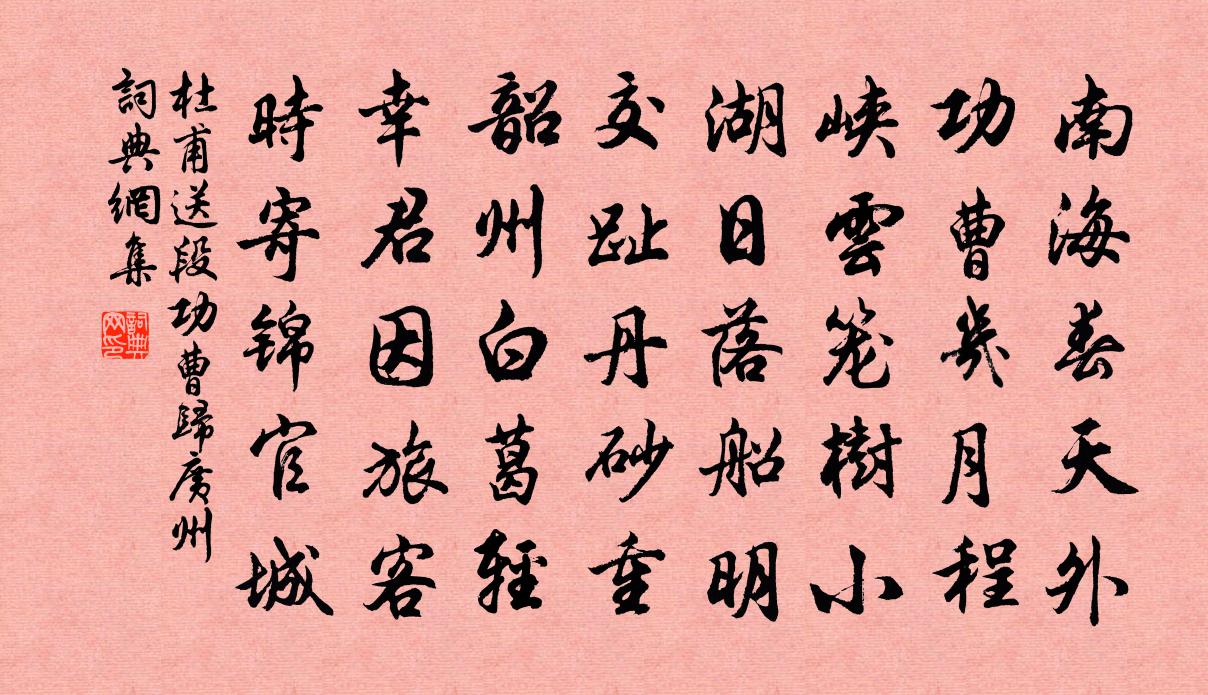 南海春天外
功曹幾月程
峽雲笼樹小
湖日落船明
交趾丹砂重
韶州白葛輕
幸君因旅客
時寄锦官城
杜甫送段功曹歸廣州
詞典網集
詞典网印